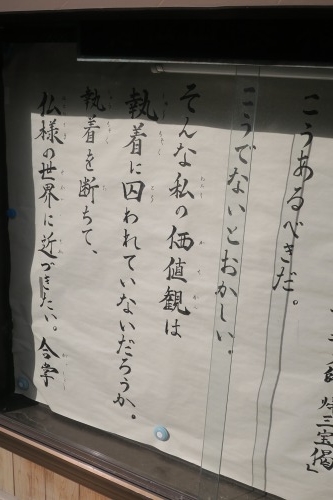 三宝偈」
こうあるべきだ。
こうでないとおかしい。
そんな私の価値観は
執着に囚われていないだろうか。
執着を断ちて、
仏様の世界に近づきたい。合掌